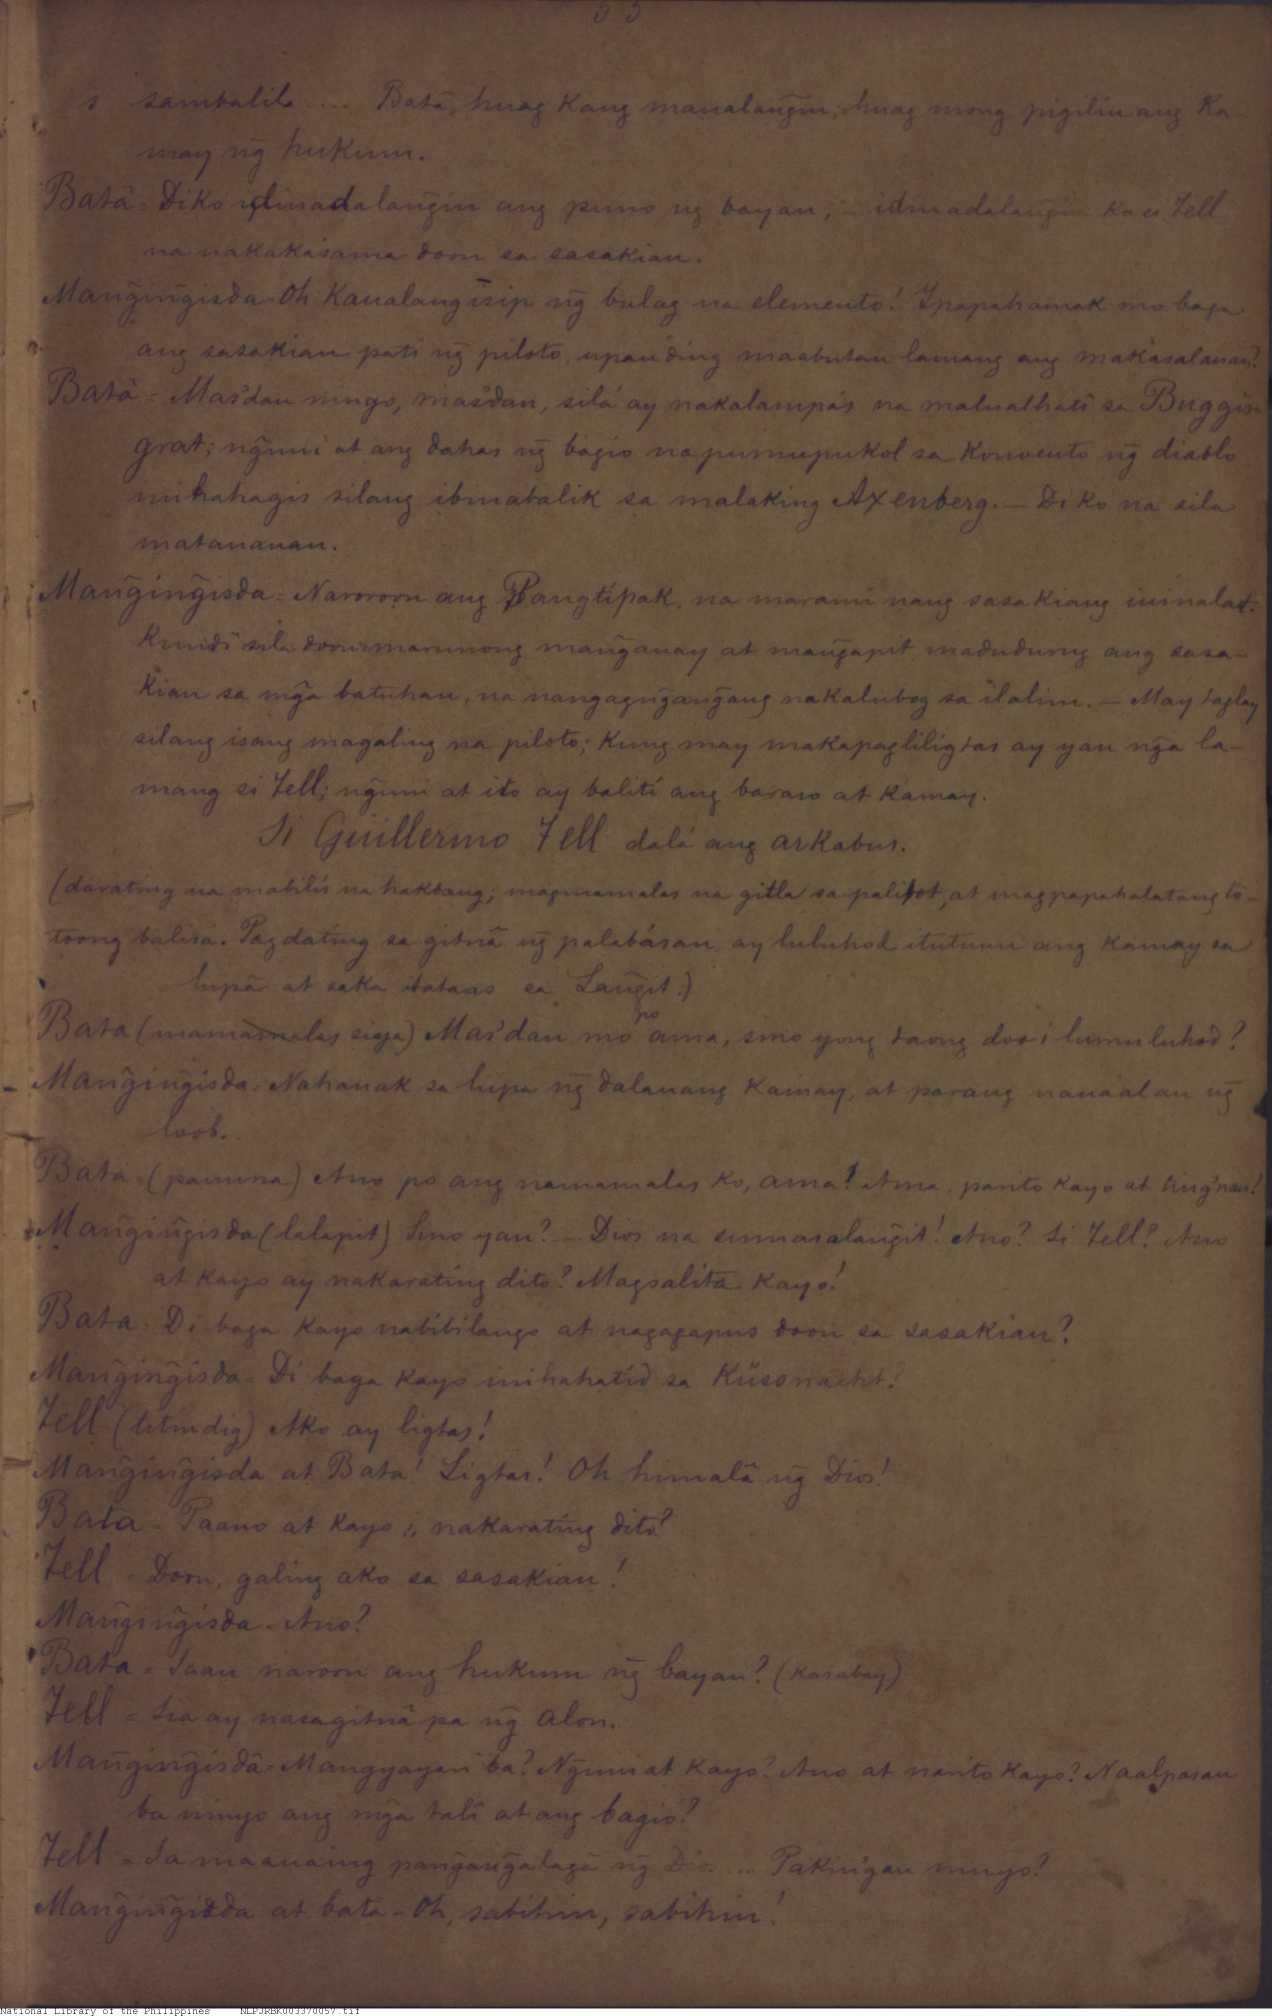 53
s sambalilo .... Batà, huag kang manalañgin; huag mong pigilin ang ka-
may ng̃ hukum.
Batà = Diko idinadalañgin ang puno ng bayan, – idinadalañgin ko si Tell
na nakakasama doon sa sasakian.
Mañgiñgisda = Oh kaualang isip ng̃ bulag na elemento! Ipapahamak mo baga
ang sasakian pati ng̃ piloto, upanding maabutan lamang ang makasalanan?
Batà = Mas'dan ninyo, mas'dan, silá ay nakalampás na malualhatì sa Buggis
grat; ng̃uni at ang dahas ng̃ bagio na pumupukol sa konvento ng̃ diablo
inihahagis silang ibinabalik sa malaking Axenberg. — Di ko na sila
matanauan.
Mañgiñgisda = Naroroon ang Pangtípak, na marami nang sasakiang iuinalat.
Kundî sila doon marunong mañgauay at mañgapit, madudurug ang sasa-
kian sa mg̃a batuhan, na nangagñgañgang nakalubog sa ilalim. — May taglay
silang isang magaling na piloto; kung may makapagliligtas ay yan ng̃a la-
mang si Tell; ng̃uni at ito ay balití ang baraso at kamay.
Si Guillermo Tell dalá ang arkabus.
(darating na mabilís na hakbang; magmamalas na gitla sa palibot, at magpapahalatang to-
toong balisa. Pagdating sa gitnâ ng̃ palabásan, ay luluhod itutuun ang kamay sa
lupà at saka tataas sa Lañgit.)
Bata (mamamalas siya) Mas'dan mo po ama, sino yong taong doo'i lumuluhod?
Mañgiñgisda = Nahauak sa lupa ng̃ dalauang kamay, at parang nauaalan ng̃
loob.
Bata = (pauuna) Ano po ang namamalas ko, ama! Ama, parito kayo at ting'nan!
Mañgiñgisda (lalapit) Sino yan? — Dios na sumasalañgit! Ano? Si Tell? Ano
at kayo ay nakarating dito? Magsalita kayo!
Bata = Di baga kayo nabibilango at nagagapus doon sa sasakian?
Mañgiñgisda = Di baga kayo inihahatid sa Küssnacht?
Tell (titindig) Ako ay ligtas!
Mañgiñgisda at Bata! Ligtas! Oh himalâ ng̃ Dios!
Bata = Paano at kayo, nakarating dito?
Tell = Doon, galing ako sa sasakian!
Mañgiñgisda = Ano?
Bata = Saan naroon ang hukum ng̃ bayan? (kasabay)
Tell = Sia ay nasagitnâ pa ng̃ alon.
Mañgiñgisda = Mangyayari ba? Ng̃uni at kayo? Ano at narito kayo? Naalpasan
ba ninyo ang mg̃a talì at ang bagio?
Tell = Sa maauaing pañgañgalagà ng̃ Dios ... Pakingan ninyo!
Mañgiñgisda at bata = Oh, sabihin, sabihin!
National Library of the Philippines NLPJRBK003370057.tif